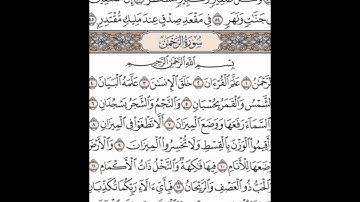 جَنَّٰتٍ وَنَهَرٍ ٥٤ فِى مَقْعَدِ صِدْقٍ عِندَ مَلِيكٍ مُّقْتَدِرٍۭ
سُورَةُ الرَّحْمَٰن
بِسْمِ ٱللَّهِ ٱلرَّحْمَٰنِ ٱلرَّحِيمِ
ٱلرَّحْمَٰنُ ١ عَلَّمَ ٱلْقُرْءَانَ ٢ خَلَقَ ٱلْإِنسَٰنَ ٣ عَلَّمَهُ ٱلْبَيَانَ ٤
ٱلشَّمْسُ وَٱلْقَمَرُ بِحُسْبَانٍ ٥ وَٱلنَّجْمُ وَٱلشَّجَرُ يَسْجُدَانِ ٦
ٱلسَّمَآءَ رَفَعَهَا وَوَضَعَ ٱلْمِيزَانَ ٧ أَلَّا تَطْغَوْا۟ فِى ٱلْمِيزَانِ ٨
أَقِيمُوا۟ ٱلْوَزْنَ بِٱلْقِسْطِ وَلَا تُخْسِرُوا۟ ٱلْمِيزَانَ ٩ وَٱلْأَرْضَ
وَضَعَهَا لِلْأَنَامِ ١٠ فِيهَا فَٰكِهَةٌ وَٱلنَّخْلُ ذَاتُ ٱلْأَكْمَامِ
وَٱلْحَبُّ ذُو ٱلْعَصْفِ وَٱلرَّيْحَانُ ١٢ فَبِأَىِّ ءَالَآءِ رَبِّكُمَا تُكَذِّبَانِ